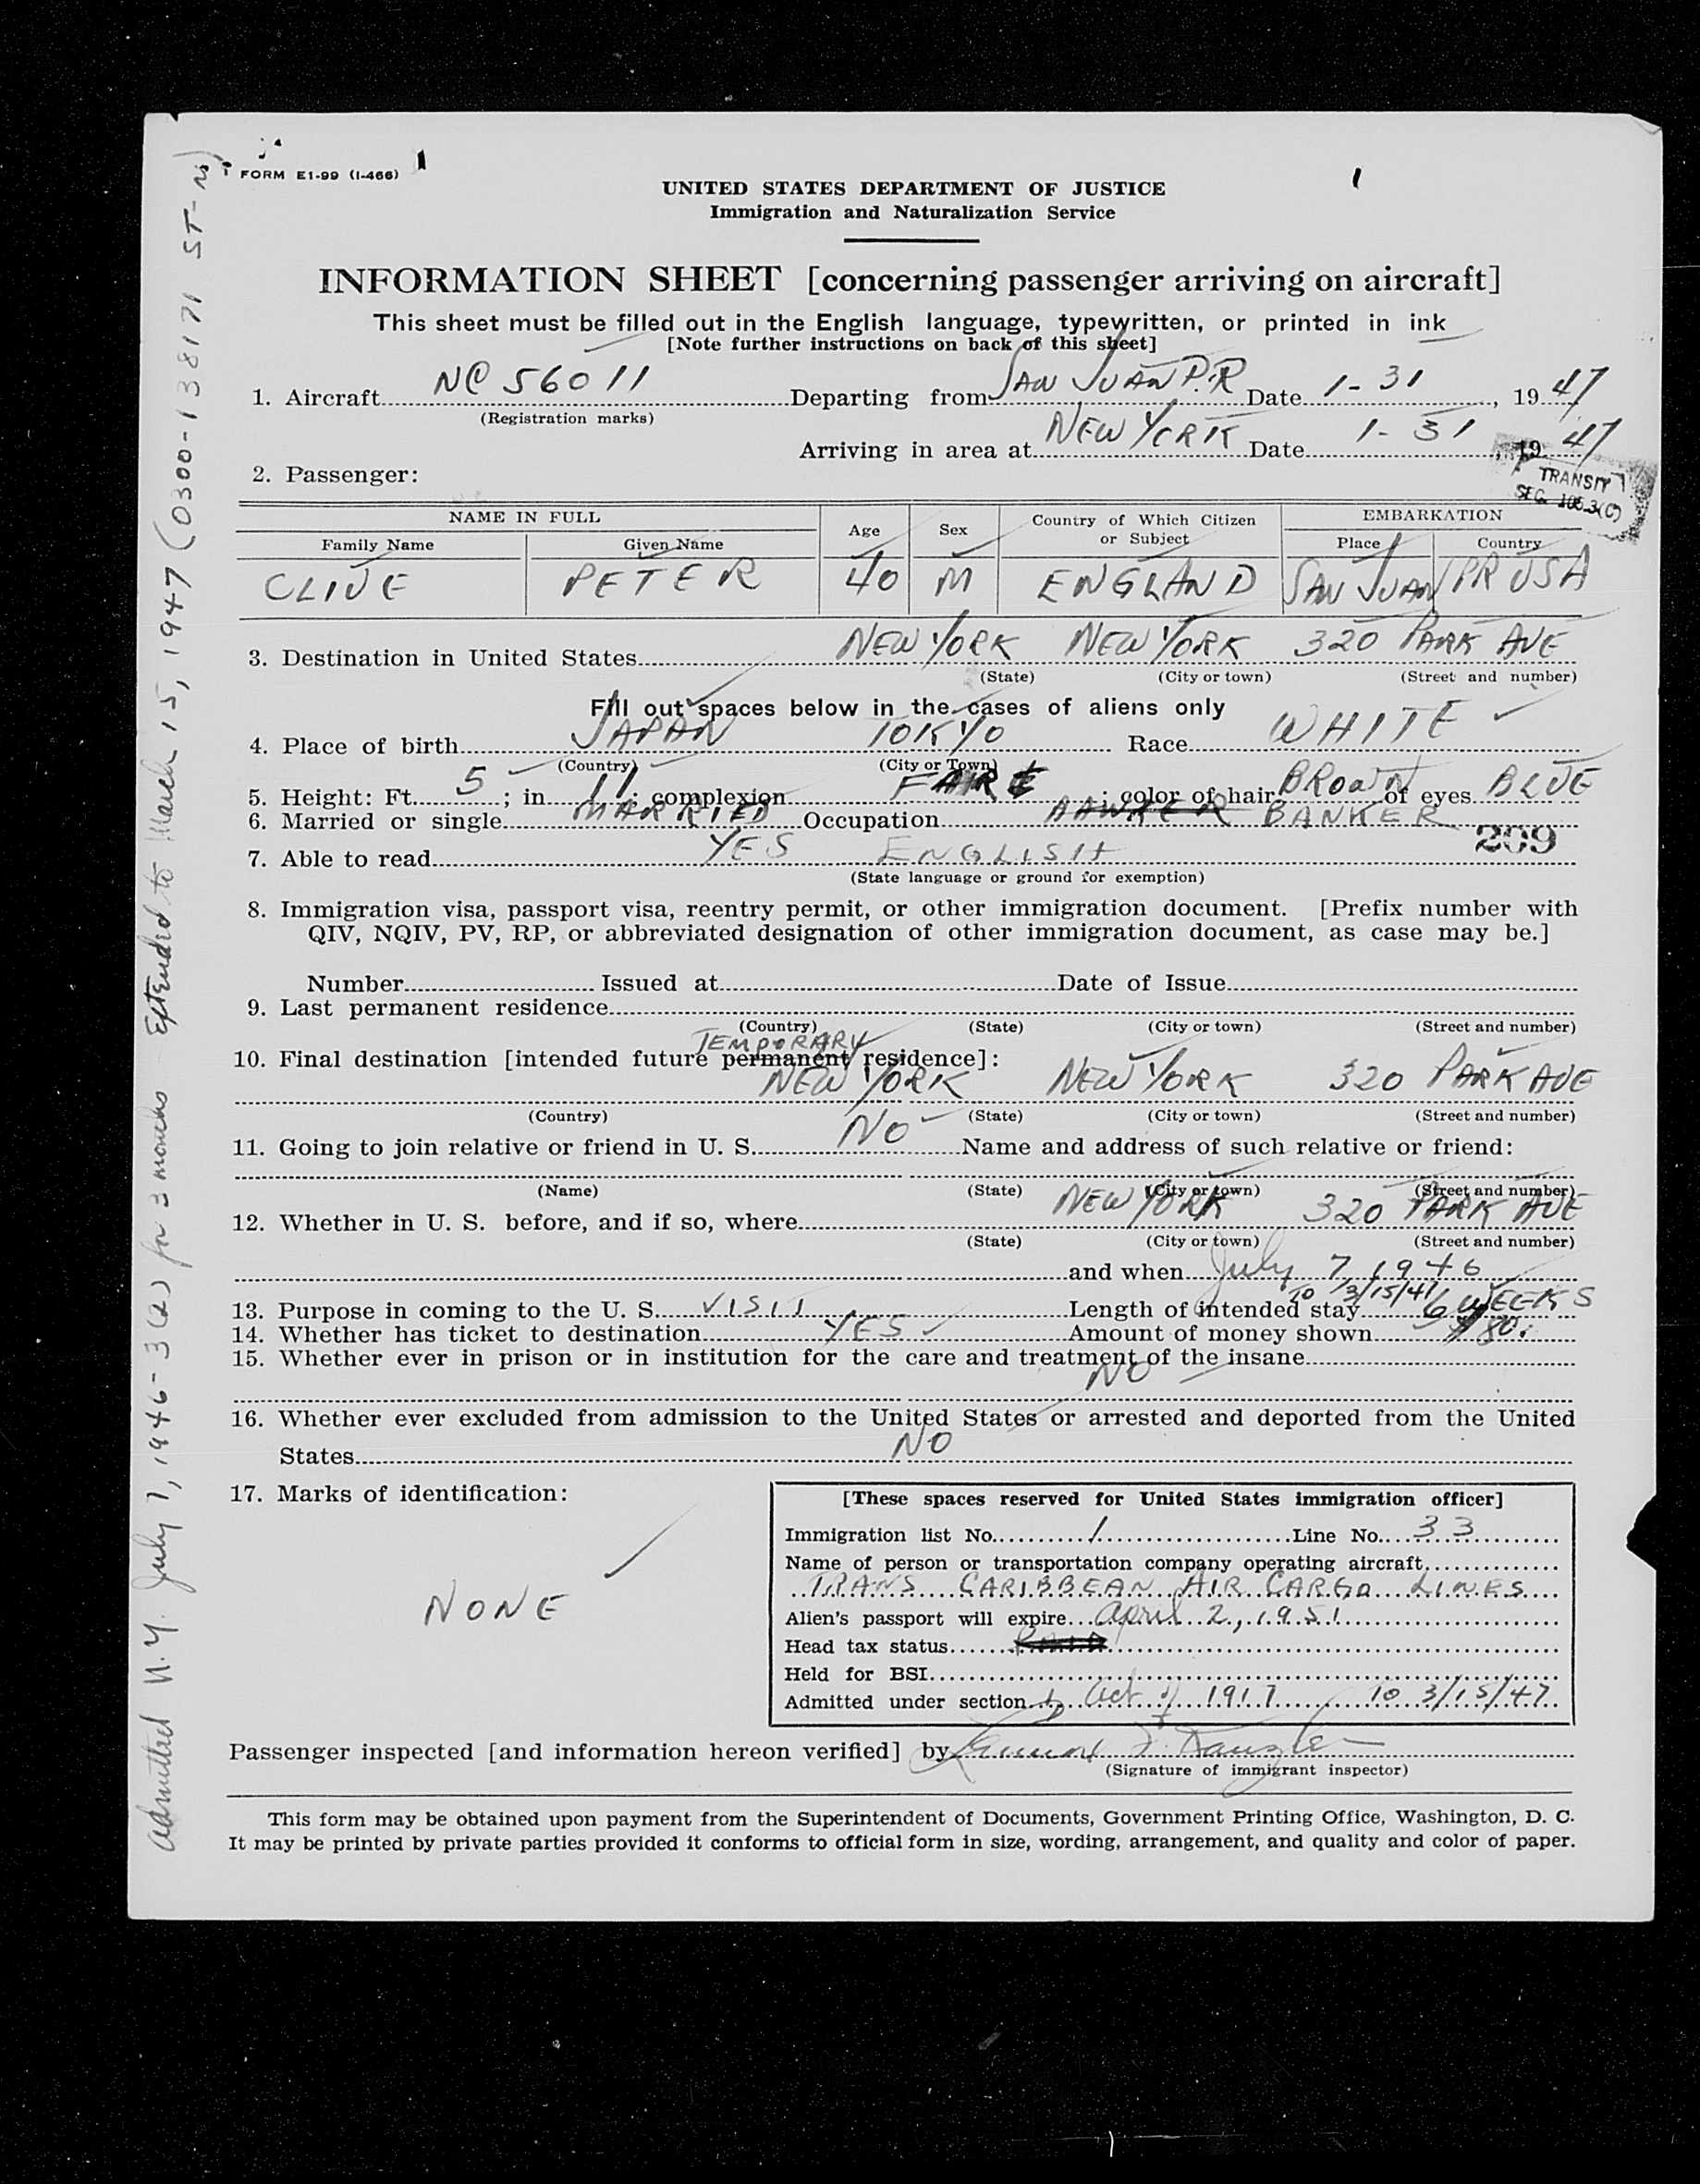 FORM E1-99 (I-466)
UNITED STATES DEPARTMENT OF JUSTICE
Immigration and Naturalization Service
INFORMATION SHEET [concerning passenger arriving on aircraft]
This sheet must be filled out in the English language, typewritten, or printed in ink
[Note further instructions on back of this sheet]
1. Aircraft NC 56011 Departing from SAN JUAN P.R Date 1-31, 1947
(Registration marks)
Arriving in area at NEW YORK Date 1-31, 1947
2. Passenger:
TRANSIT
SEC. 105.3(C)
NAME IN FULL Age Sex Country of Which Citizen or Subject EMBARKATION
Family Name Given Name Place Country
CLIVE PETER 40 M ENGLAND SAN JUAN PR USA
3. Destination in United States NEW YORK NEW YORK 320 PARK AVE
(State) (City or town) (Street and number)
Fill out spaces below in the cases of aliens only
4. Place of birth JAPAN TOKYO Race WHITE
(Country) (City or Town)
5. Height: Ft. 5; in. 11; complexion FAIR; color of hair BROWN of eyes BLUE
6. Married or single MARRIED Occupation BANKER
209
7. Able to read YES ENGLISH
(State language or ground for exemption)
8. Immigration visa, passport visa, reentry permit, or other immigration document. [Prefix number with
QIV, NQIV, PV, RP, or abbreviated designation of other immigration document, as case may be.]
Number Issued at Date of Issue
9. Last permanent residence
(Country) (State) (City or town) (Street and number)
TEMPORARY
10. Final destination [intended future permanent residence]:
NEW YORK NEW YORK 320 PARK AVE
(Country) (State) (City or town) (Street and number)
11. Going to join relative or friend in U. S. NO Name and address of such relative or friend:
(Name) (State) (City or town) (Street and number)
12. Whether in U. S. before, and if so, where NEW YORK 320 PARK AVE
(State) (City or town) (Street and number)
and when July 7, 1946
TO 3/15/47
13. Purpose in coming to the U. S. VISIT Length of intended stay 6 WEEKS
14. Whether has ticket to destination YES Amount of money shown $80.
15. Whether ever in prison or in institution for the care and treatment of the insane
NO
16. Whether ever excluded from admission to the United States or arrested and deported from the United
States NO
17. Marks of identification:
NONE
[These spaces reserved for United States immigration officer]
Immigration list No. 1 Line No. 33
Name of person or transportation company operating aircraft
TRANS CARIBBEAN AIR CARGO LINES
Alien's passport will expire April 2, 1951
Head tax status
Held for BSI
Admitted under section Act of 1917 TO 3/15/47
Passenger inspected [and information hereon verified] by
(Signature of immigrant inspector)
This form may be obtained upon payment from the Superintendent of Documents, Government Printing Office, Washington, D. C.
It may be printed by private parties provided it conforms to official form in size, wording, arrangement, and quality and color of paper.
Admitted N.Y. July 7, 1946 - 3(2) for 3 months Extended to March 15, 1947 (0300-138171 ST-N)